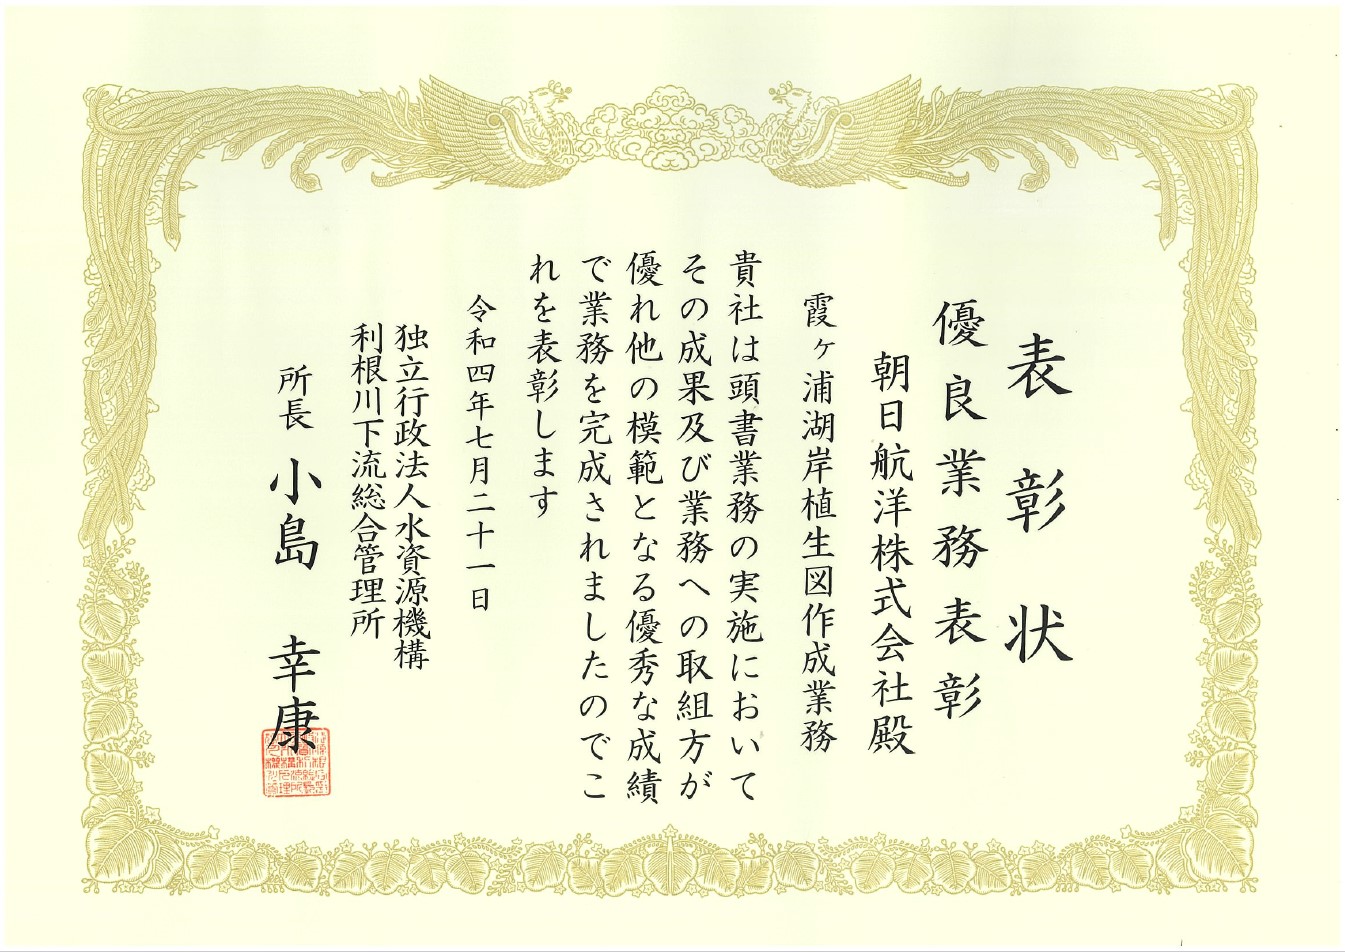 表彰状
優良業務表彰
朝日航洋株式会社殿
霞ヶ浦湖岸植生図作成業務
貴社は頭書業務の実施において
その成果及び業務への取組方が
優れ他の模範となる優秀な成績
で業務を完成されましたのでこ
れを表彰します
令和四年七月二十一日
独立行政法人水資源機構
利根川下流総合管理所
所長 小島 幸康